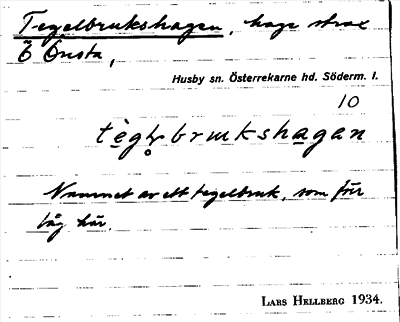 Tegelbrukshagen, hage strax
Ö Önsta,
Husby sn. Österrekarne hd. Söderm. l.
10
tègḷbrukshagan
Namnet av ett tegelbruk, som förr
låg här.
LARS HELLBERG 1934.